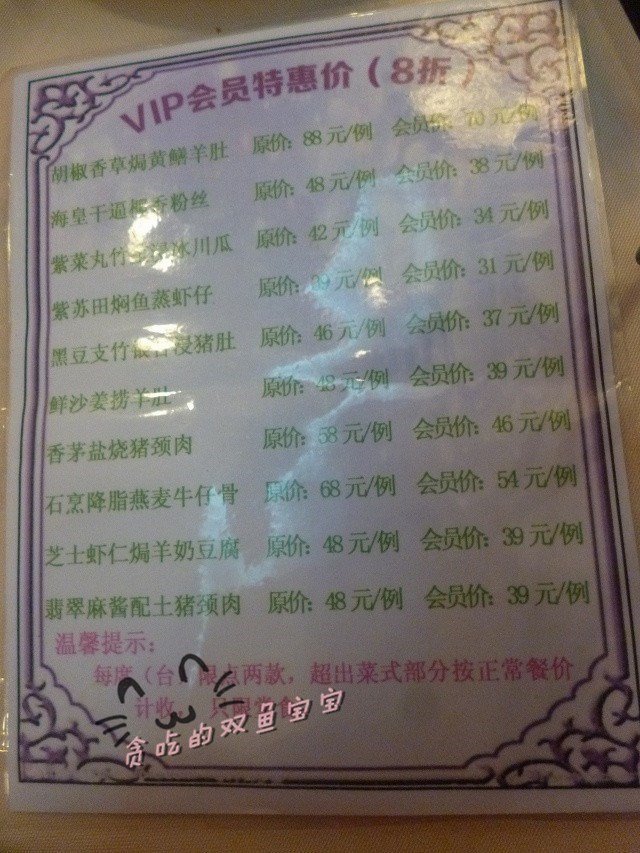 VIP会员特惠价（8折）
胡椒香草焗黄鳝羊肚 原价: 88 元/例 会员价: 70 元/例
海皇干逼 香粉丝 原价: 48 元/例 会员价: 38 元/例
紫菜丸竹 浸冰川瓜 原价: 42 元/例 会员价: 34 元/例
紫苏田焖鱼蒸虾仔 原价: 39 元/例 会员价: 31 元/例
黑豆支竹 浸猪肚 原价: 46 元/例 会员价: 37 元/例
鲜沙姜捞羊肚 原价: 48 元/例 会员价: 39 元/例
香茅盐烧猪颈肉 原价: 58 元/例 会员价: 46 元/例
石烹降脂燕麦牛仔骨 原价: 68 元/例 会员价: 54 元/例
芝士虾仁焗羊奶豆腐 原价: 48 元/例 会员价: 39 元/例
翡翠麻酱配土猪颈肉 原价: 48 元/例 会员价: 39 元/例
温馨提示:
每度（台）限点两款，超出菜式部分按正常餐价
计收
贪吃的双鱼宝宝